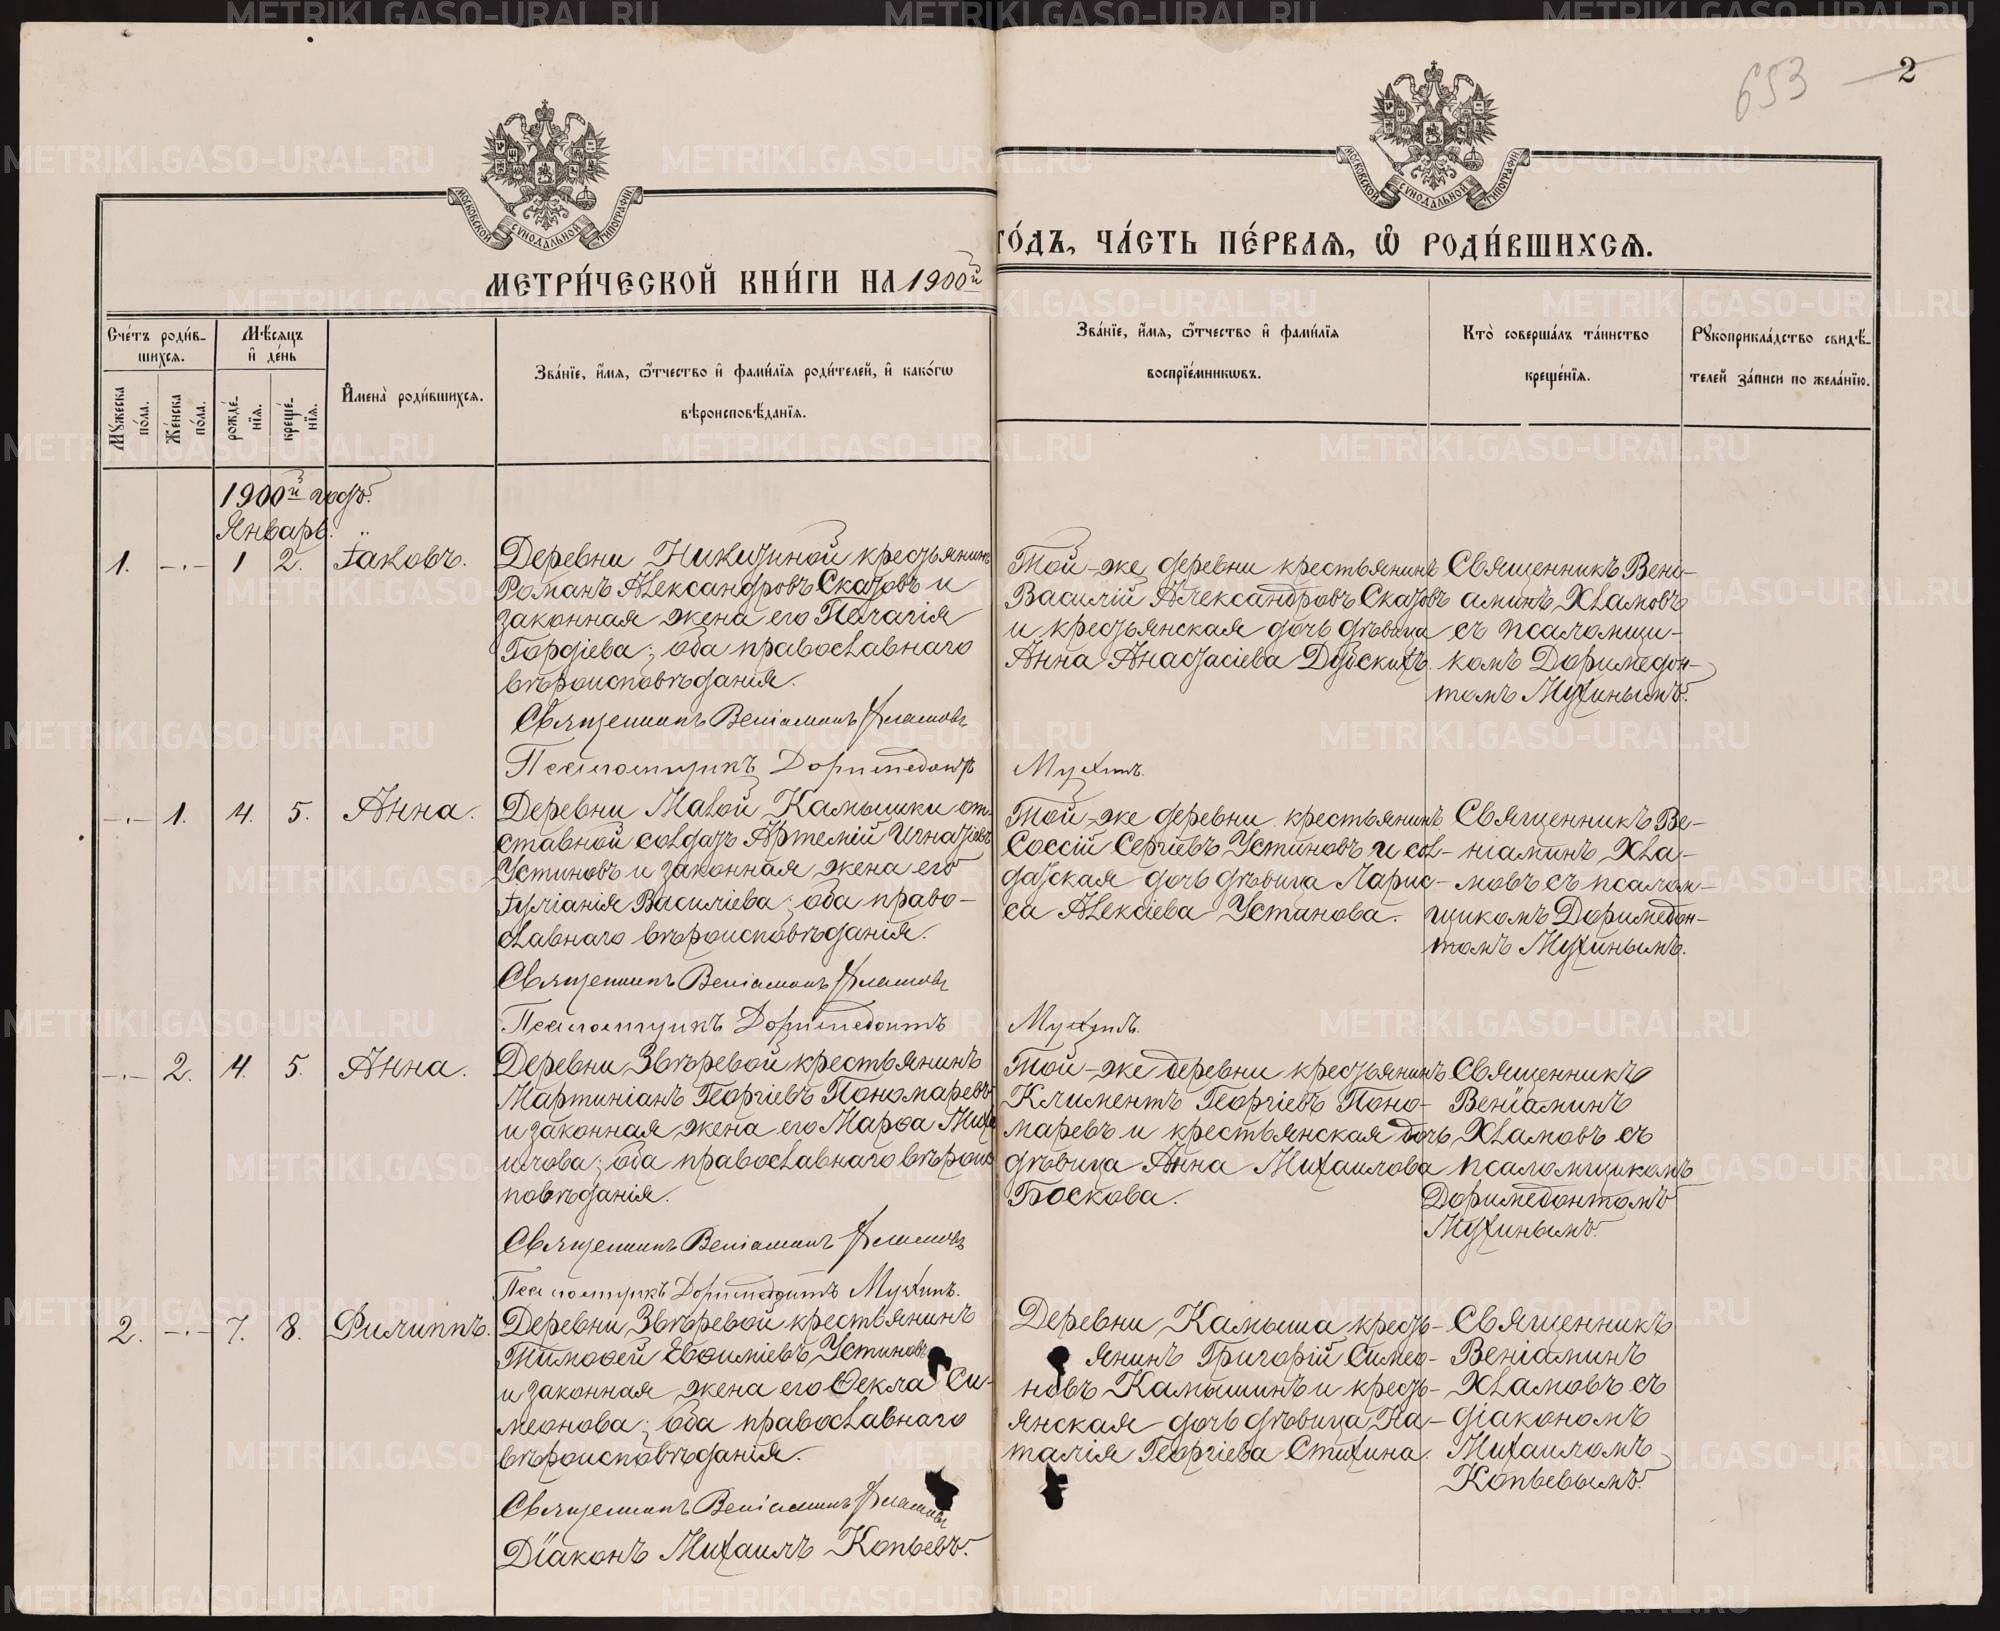 653 2
МОСКОВСКОЙ СѴНОДАЛЬНОЙ ТИПОГРАФІИ
МОСКОВСКОЙ СѴНОДАЛЬНОЙ ТИПОГРАФІИ
МЕТРИ́ЧЕСКОЙ КНИ́ГИ НА 1900й
ГО́ДЪ, ЧА́СТЬ ПЕ́РВАѦ, Ѡ҆ РОДИ́ВШИХСѦ.
Сче́тъ роди́в-
шихся.
Мꙋ́жеска по́ла.
Же́нска по́ла.
Мѣ́сяцъ и҆ де́нь
рожде́-
нїя.
креще́-
нїя.
И҆мена̀ роди́вшихся.
Зва́нїе, и҆́мя, ѻ҆́тчество и҆ фами́лїя роди́телей, и҆ како́гѡ
вѣроисповѣ́данїя.
Зва́нїе, и҆́мя, ѻ҆́тчество и҆ фами́лїя
воспрїе́мникѡвъ.
Кто̀ соверша́лъ та́инство
креще́нїя.
Рꙋкоприкла́дство свидѣ́-
телей за́писи по жела́нїю.
1900й годъ.
Январь.
1. -·- 1 2. Іаковъ.
Деревни Никитиной крестьянинъ
Романъ Александровъ Скатовъ и
законная жена его Пелагія
Гордіева; оба православнаго
вѣроисповѣданія.
Священникъ Веніаминъ Хламовъ
Псаломщикъ Доримедонтъ
Той-же деревни крестьянинъ
Василій Александровъ Скатовъ
и крестьянская дочь дѣвица
Анна Анастасіева Дубскихъ.
Мухинъ.
Священникъ Вені-
аминъ Хламовъ
съ псаломщи-
комъ Доримедон-
томъ Мухинымъ.
-·- 1. 4. 5. Анна.
Деревни Малой Камышки от-
ставной солдатъ Артемій Игнатіевъ
Устиновъ и законная жена его
Іуліанія Василіева; оба право-
славнаго вѣроисповѣданія.
Священникъ Веніаминъ Хламовъ
Псаломщикъ Доримедонтъ
Той-же деревни крестьянинъ
Соссій Сергіевъ Устиновъ и сол-
датская дочь дѣвица Ларис-
са Алексіева Устинова.
Мухинъ.
Священникъ Ве-
ніаминъ Хла-
мовъ съ псалом-
щикомъ Доримедон-
томъ Мухинымъ.
-·- 2. 4. 5. Анна.
Деревни Звѣревой крестьянинъ
Мартиніанъ Георгіевъ Пономаревъ
и законная жена его Марѳа Миха
илова; оба православнаго вѣроис
повѣданія.
Священникъ Веніаминъ Хламовъ
Псаломщикъ Доримедонтъ Мухинъ.
Той-же деревни крестьянинъ
Климентъ Георгіевъ Поно-
маревъ и крестьянская дочь,
дѣвица Анна Михаилова
Боскова.
Священникъ
Веніаминъ
Хламовъ съ
псаломщикомъ
Доримедонтомъ
Мухинымъ.
2. -·- 7. 8. Филиппъ.
Деревни Звѣревой крестьянинъ
Тимоѳей Евѳиміевъ Устиновъ
и законная жена его Ѳекла Си-
меонова; оба православнаго
вѣроисповѣданія.
Священникъ Веніаминъ Хламовъ
Діаконъ Михаилъ Копьевъ.
Деревни Камыша кресть-
янинъ Григорій Симео-
новъ Камышинъ и кресть-
янская дочь дѣвица На-
талія Георгіева Стихина.
Священникъ
Веніаминъ
Хламовъ съ
діакономъ
Михаиломъ
Копьевымъ.
METRIKI.GASO-URAL.RU